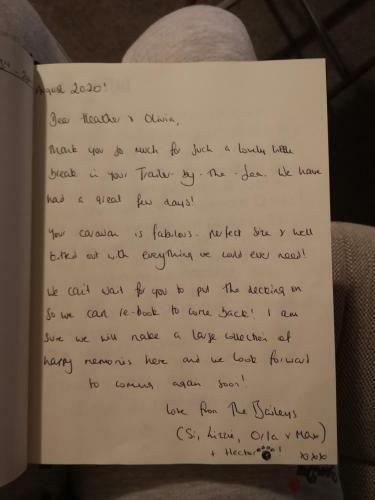 August 2020!
Dear Heather & Olivia,
Thank you so much for such a lovely little
break in your Trailer-by-the-Sea. We have
had a great few days!
Your caravan is fabulous - perfect size & well
kitted out with everything we could ever need!
We can't wait for you to put the decking on
so we can re-book to come back! I am
sure we will make a large collection of
happy memories here and we look forward
to coming again soon!
Love from The Baileys
(Si, Lizzie, Orla & Max)
+ Hector !
xoxoxo